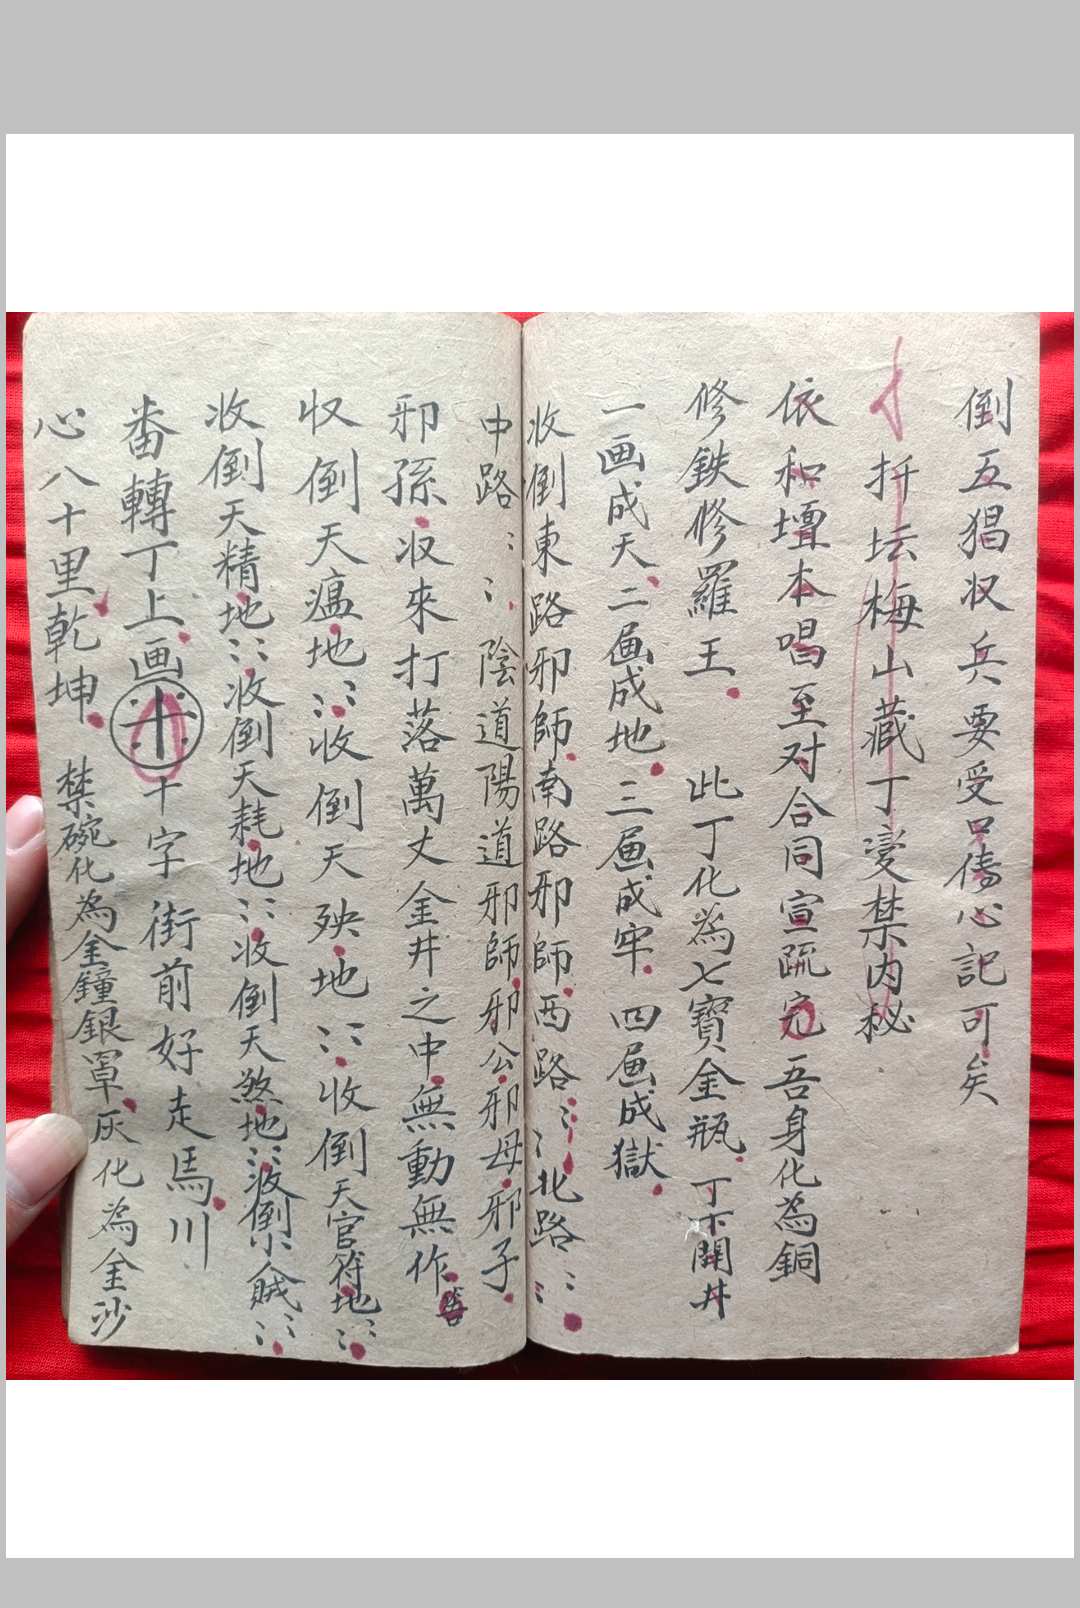 倒五猖収兵要受口傳心記可矣
扦坛梅山藏丁变禁内秘
依和壇本唱至对合同宣疏完吾身化為銅
修鉄修羅王此丁化為七寶金瓶丁下開井
一画成天二画成地三画成牢四画成獄
收倒東路邪師南路邪師西路：：北路：：
中路：：陰道陽道邪師邪公邪母邪子
邪孫収來打落萬丈金井之中無動無作
収倒天瘟地：：收倒天殃地：：收倒天官符地：：
收倒天精地：：收倒天耗地：：收倒天煞地：：收倒小人賊：：
畨轉丁上画十字街前好走馬川
心八十里乾坤禁碗化為金鐘銀罩灰化為金沙